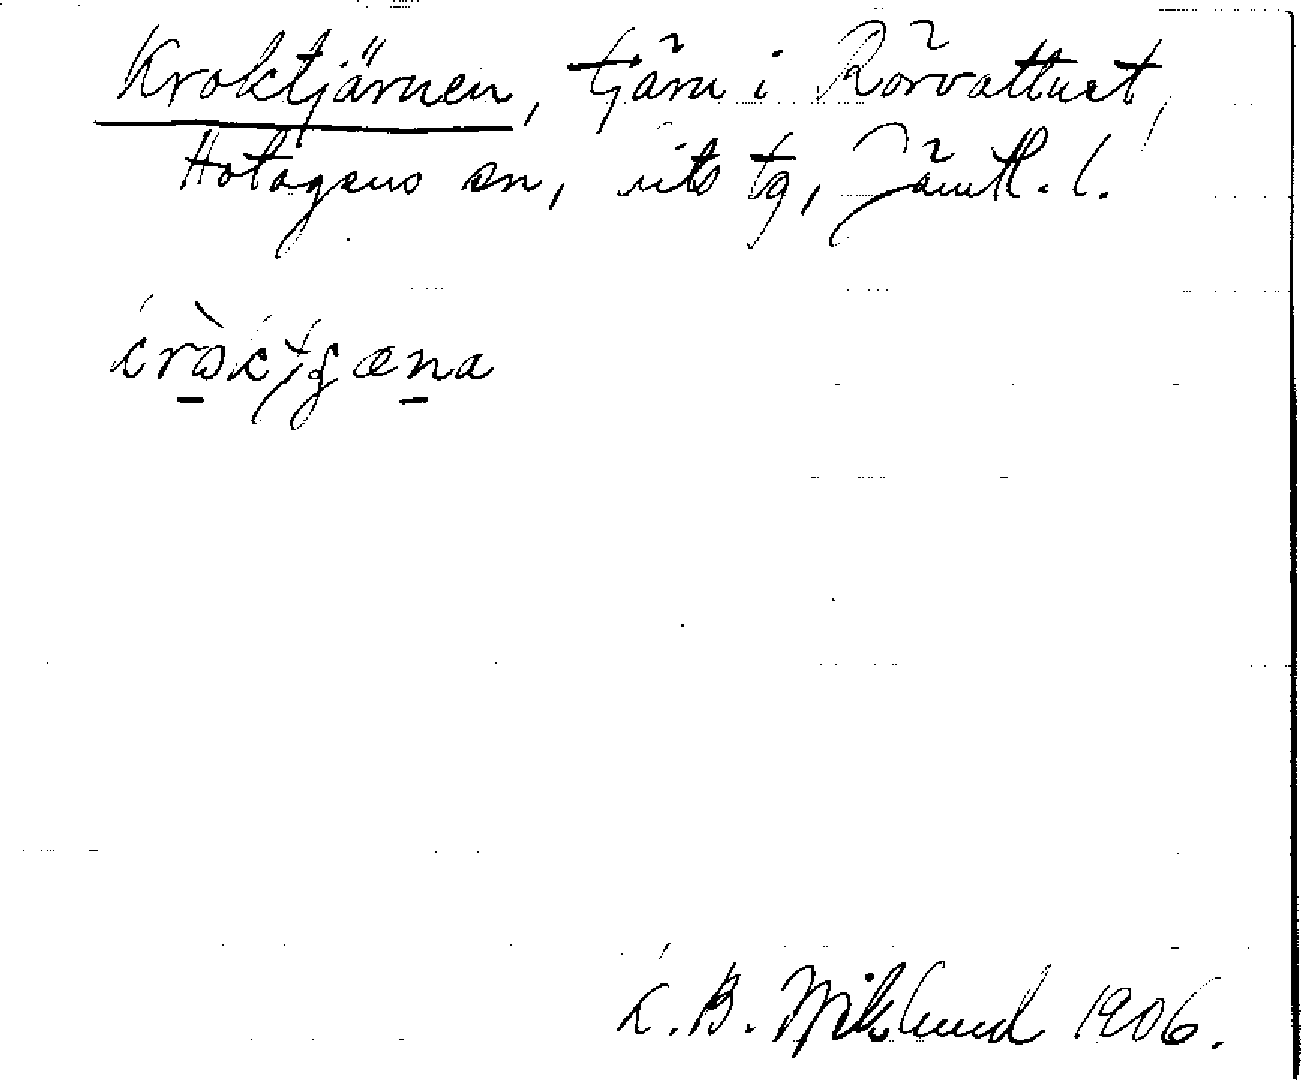 Kroktjärnen, tjärn i Rörvattnet,
Hotagens sn, uts tg, Jämtl. l.
kròktʃgæna
K. B. Wiklund 1906.